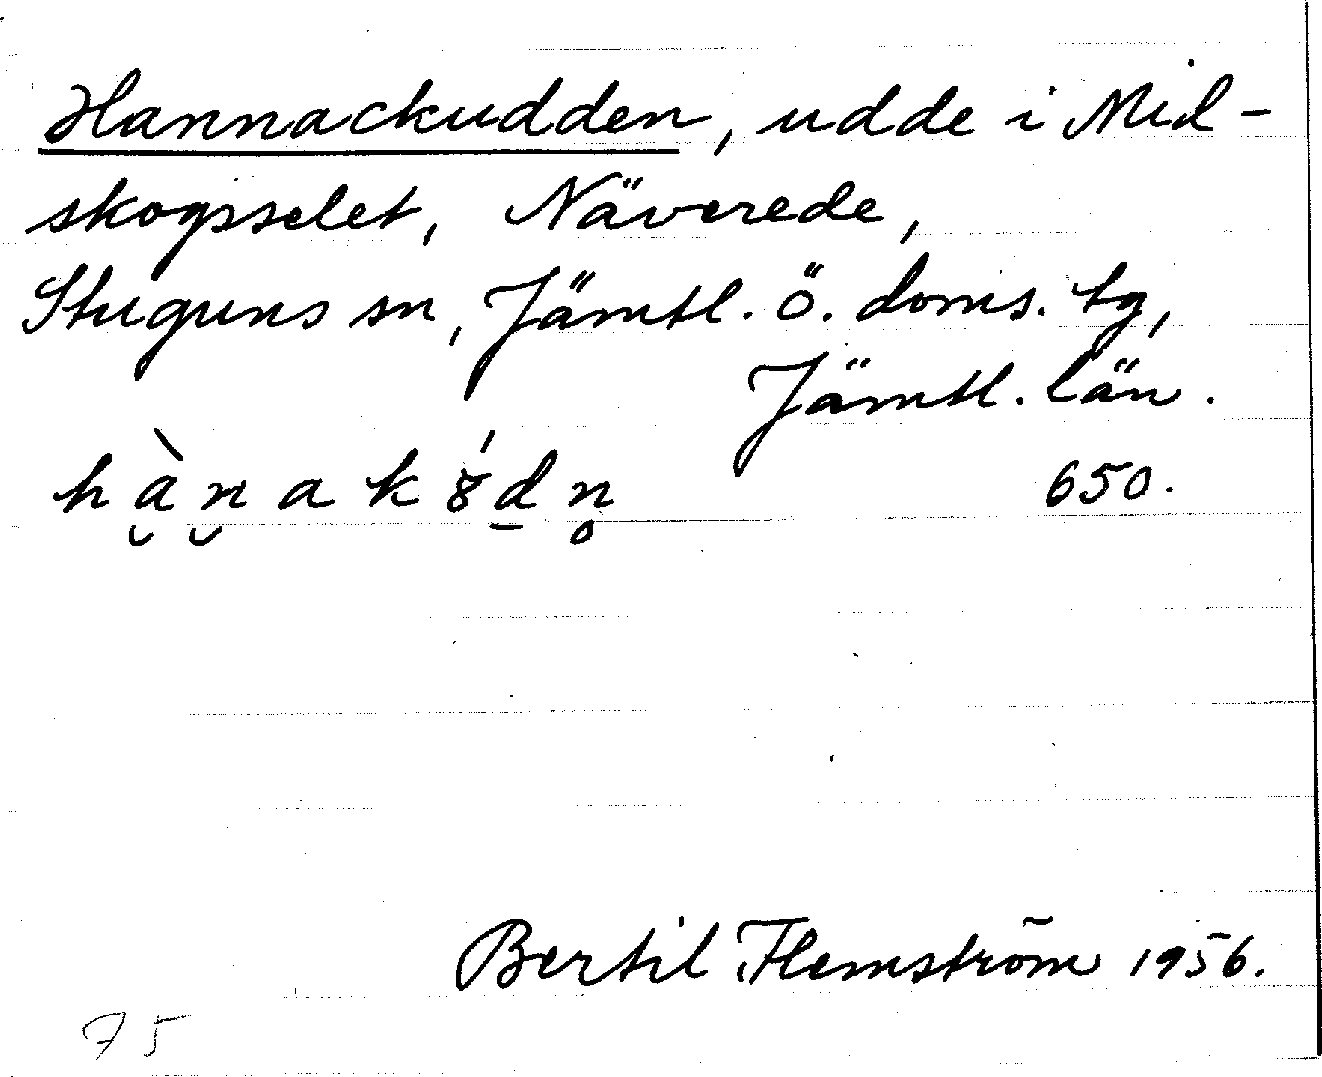 Hannackudden, udde i Mid-
skogsselet, Näverede,
Stuguns sn, Jämtl. ö. doms. tg,
Jämtl. län.
hà̮n̮akȣ́d̲n̥ 650.
Bertil Flemström 1956.
75